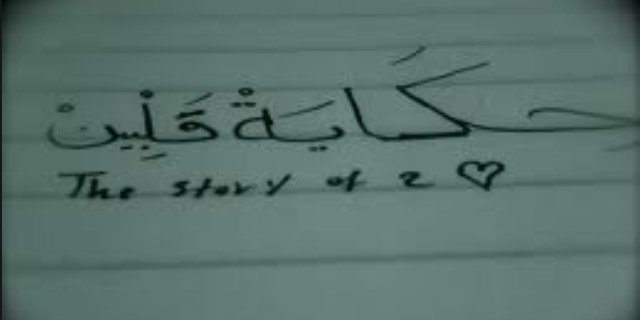 حكَايةْ قَلْبِينْ
The story of 2 ♡